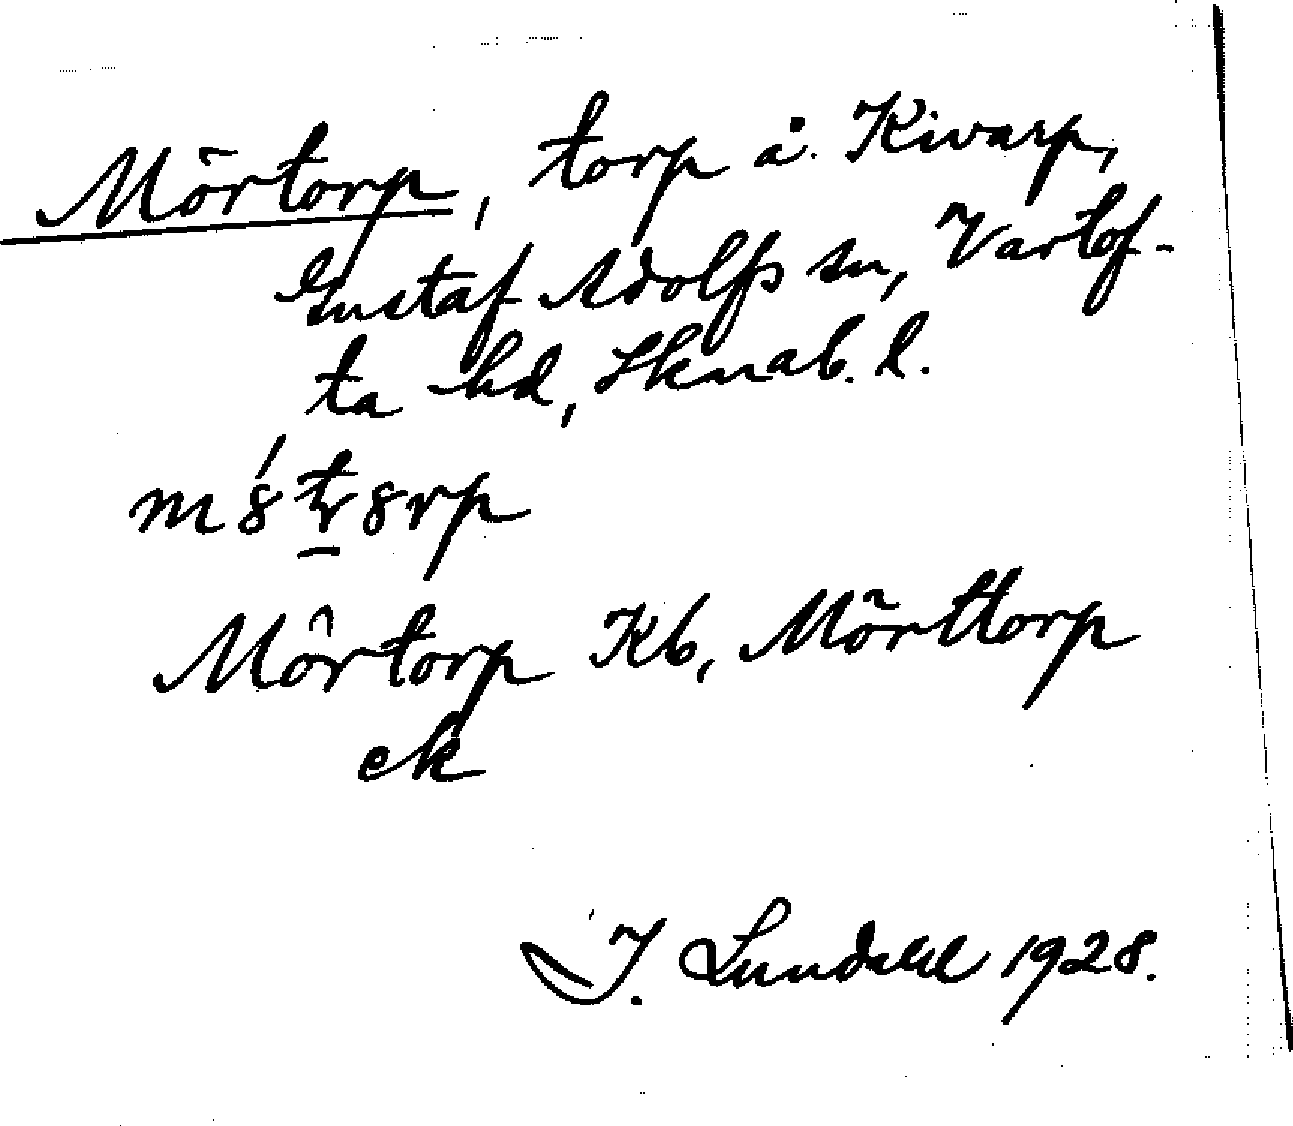 Mörtorp, torp å Kivarp,
Gustaf Adolfs sn, Vartof-
ta hd, Skarab. l.
Mörtorp Kb, Mörttorp
ek
J. Lundahl 1928.